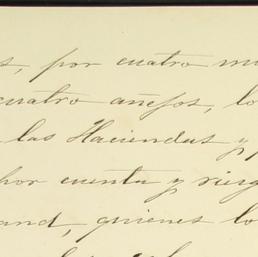 s, por cuatro mi
cuatro añejos, lo
las Haciendas y p
por cuenta y riesg
and, quienes lo